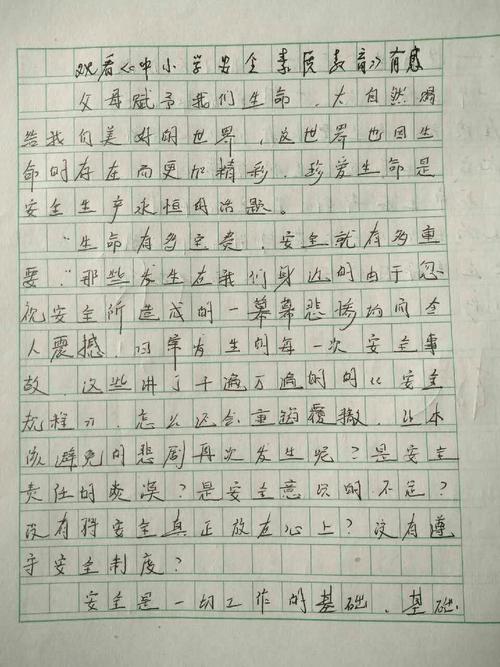 观看《中小学安全素质教育》有感
父母赋予我们生命，大自然赐
给我们美好的世界，这世界也因生
命的存在而更加精彩，珍爱生命是
安全生产永恒的话题。
"生命有多宝贵，安全就有多重
要"那些发生在我们身边的由于忽
视安全所造成的一幕幕悲惨均间令
人震撼，回有生的每一次安全事
故，这些讲了千遍万遍的的《安全
规程》，怎么还会重蹈覆撤，让本
该避免的悲剧再次发生呢？是安全
责任的淡漠？是安全意识的不足？
没有将安全真正放在心上？没有遵
守安全制度？
安全是一切工作的基础，基础